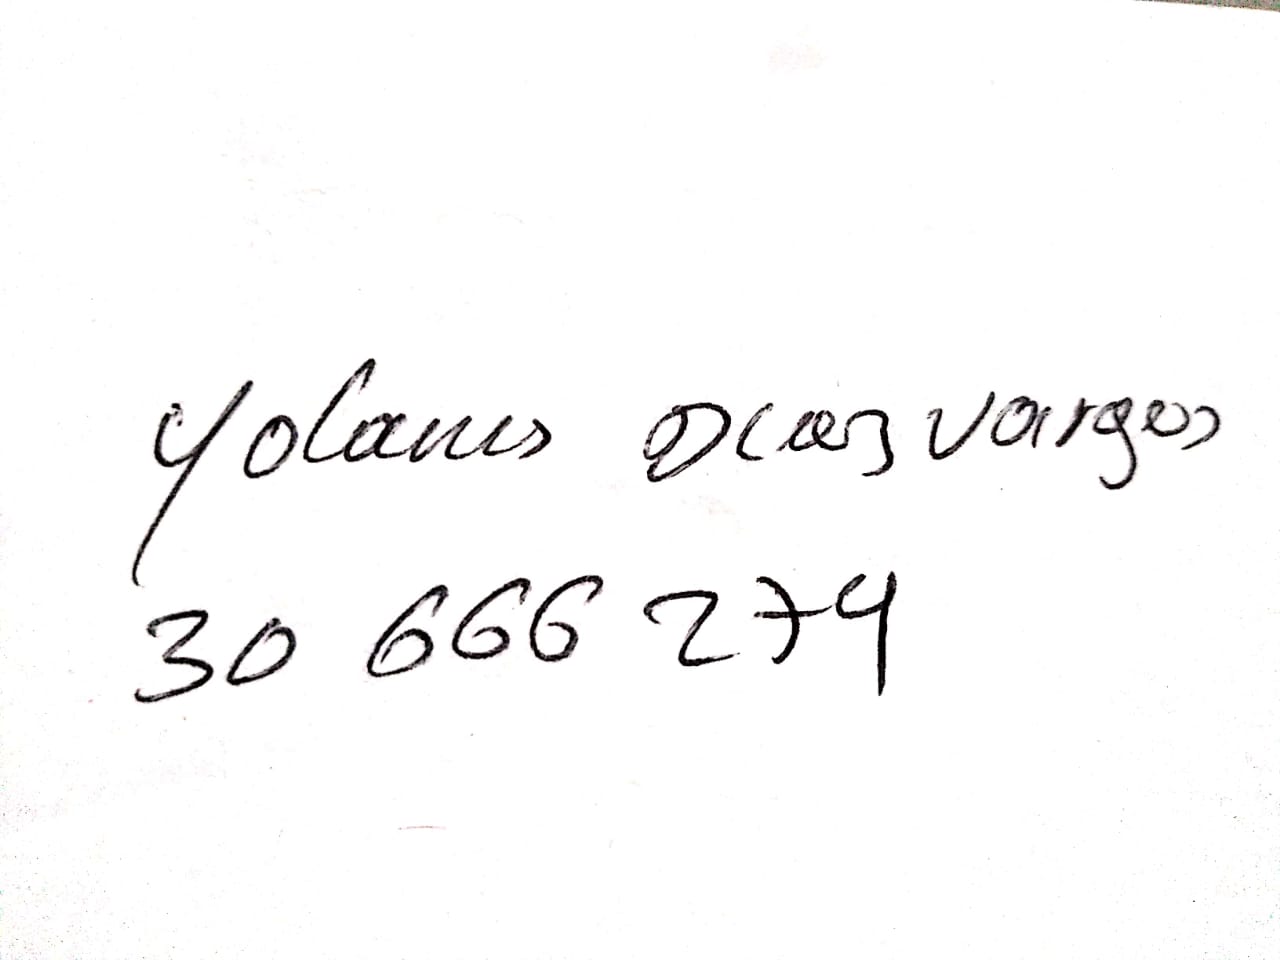 Yolanis Diaz vargas
30 666 274